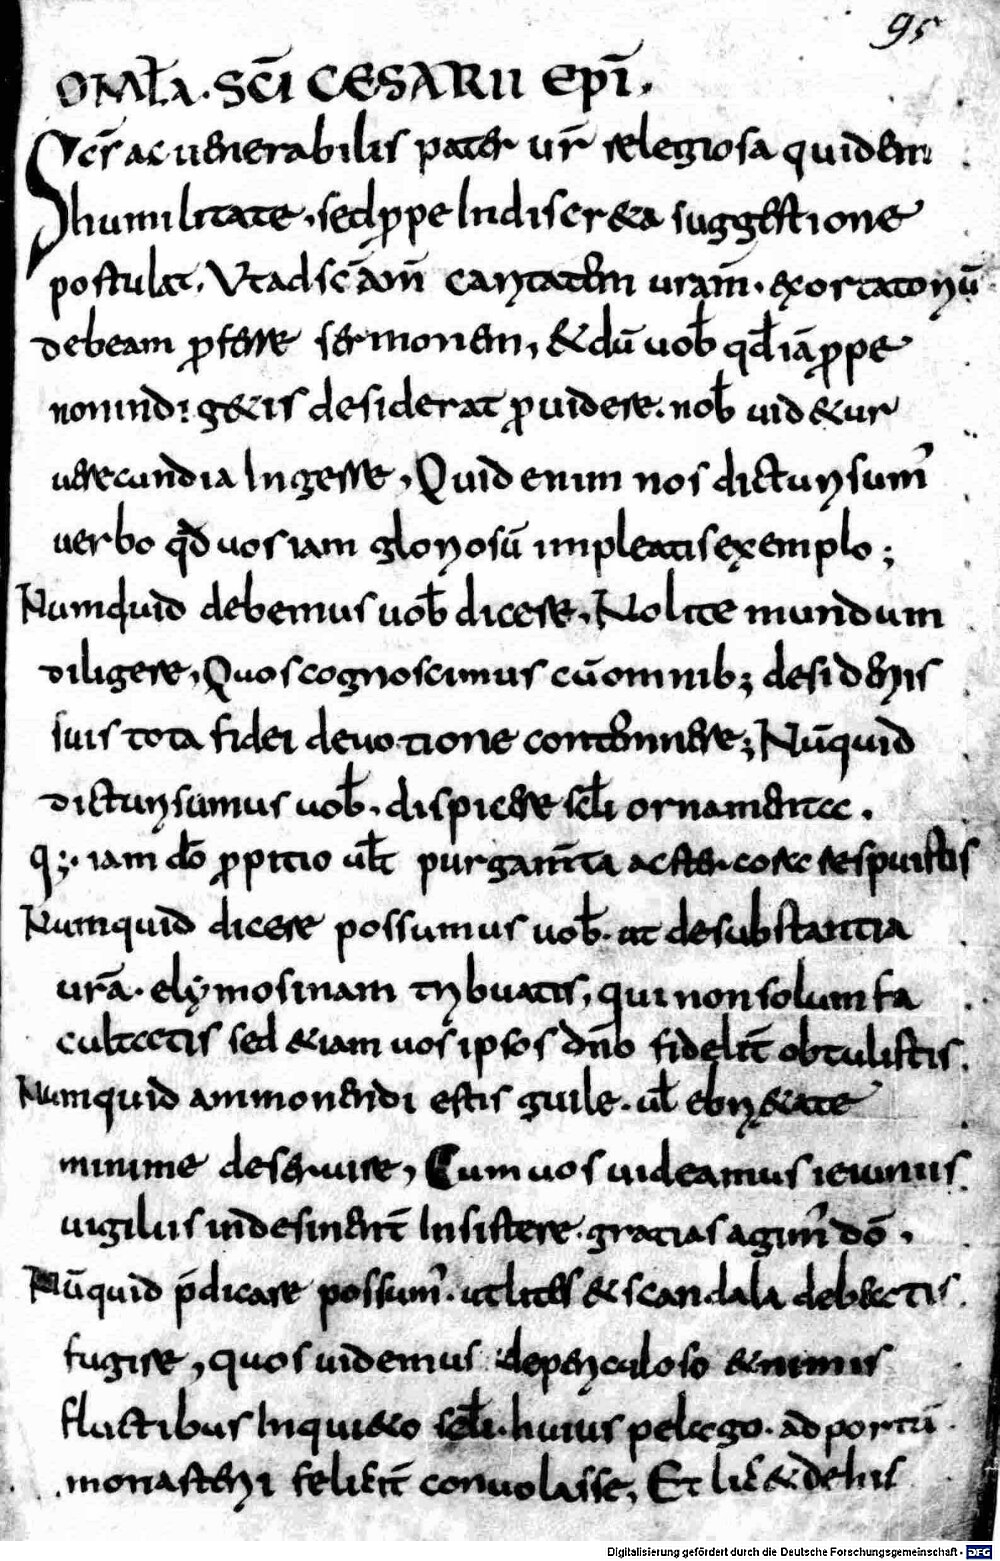 95
OML̄A. SC̄I CESARII EPĪ.
Sc̄s ac uenerabilis pater ur̄ relegiosa quidem
humilitate, sed ꝓpe Indiscreta suggestione
postulat, Ut ad sc̄am̄ caritatem uram̄. exortatoriū
debeam ꝓferre sermonem, & dū uob̄ qd̄ iā ꝓpe
non indigetis desiderat ꝓuidere. nob̄ uidetur
uerecundia Ingerere, Quid enim nos dicturi sum᾿
uerbo qd̄ uos iam gloriosū impleatis exemplo;
Numquid debemus uob̄ dicere, Nolite mundum
diligere, Quos cognoscimus cū omnib; desideriis
suis tota fidei deuotione contemnere; Nūquid
dicturi sumus uob̄. dispicere scl̄i ornamenta.
q;. iam dō ꝓpitio ul̄t purgamēta respuistis
Numquid dicere possumus uob̄. ut de substantia
urā. elymosinam tribuatis, qui non solum fa
cultatis sed &iam uos ipsos dn̄o fidelit̄ obtulistis.
Numquid ammonendi estis guile. ul̄ ebri&ate
minime deseruire, Cum uos uideamus ieiuniis
uigiliis indesinent̄ Insistere. gratias agim᾿ dō.
Nūquid p̄dicare possum᾿. ut lites & scandala debeatis
fugire, quos uidemus de periculoso & nimis
fluctibus Inqui&o scl̄i. huius pelago. ad portū
monasterii felicit̄ conuolasse, Et lic̄& de his
Digitalisierung gefördert durch die Deutsche Forschungsgemeinschaft - DFG